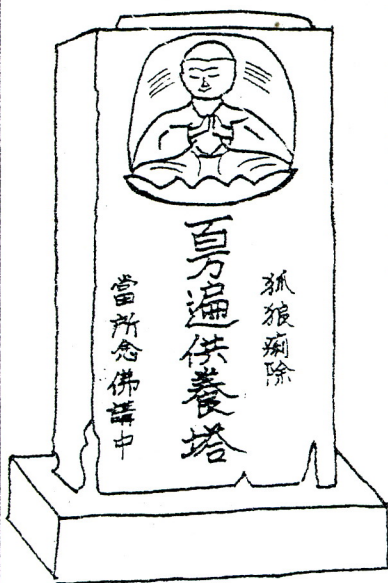 狐狼痢除
百万遍供養塔
當所念佛講中